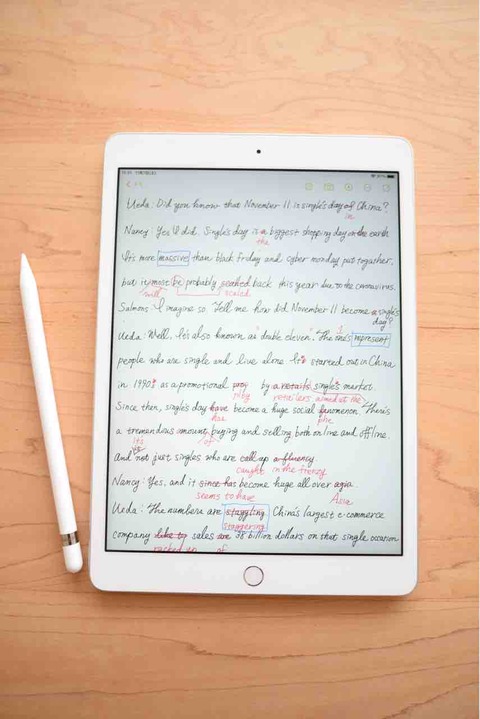 Ueda: Did you know that November 11 is single's day of China?
in
Nancy: Yes I did. Single's day is a biggest shopping day on the earth
the
It's more massive than black Friday and cyber monday put together,
but it most be probably scaled back this year due to the coronavirus.
will scaled
Salmons: I imagine so. Tell me how did November 11 become a single's
day?
Ueda: Well, It's also known as "double eleven". The one's represent
1
people who are single and live alone It's started out in China
in 1990s as a promotional proy by a retails single's market.
ploy retailers aimed at the
Since then, single's day have become a huge social fanomenon. There's
has phe
a tremendous amount buying and selling both online and offline.
it's of
And not just singles who are call up a fluency.
caught in the frenzy
Nancy: Yes, and it since has become huge all over asia
seems to have Asia
Ueda: The numbera are staggling China's largest e-commerce
staggering
company like to sales are 38 billion dollars on that single occasion
racked up of